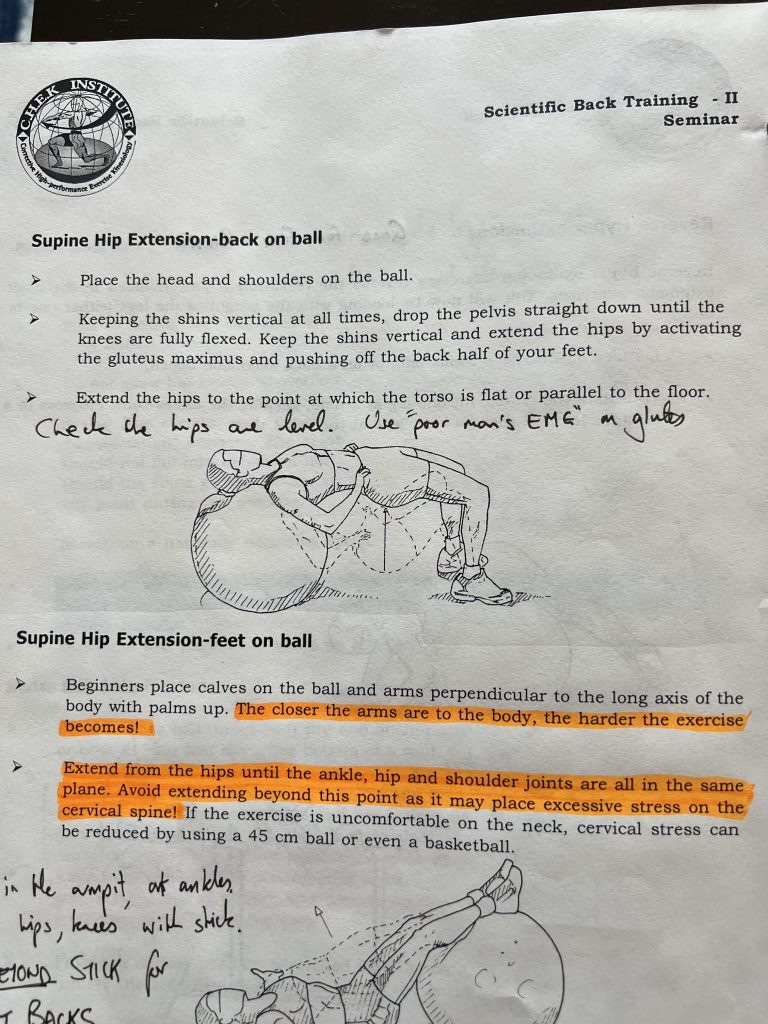 C.H.E.K INSTITUTE
Corrective High-performance Exercise Kinesiology
Scientific Back Training - II
Seminar
Supine Hip Extension-back on ball
➢ Place the head and shoulders on the ball.
➢ Keeping the shins vertical at all times, drop the pelvis straight down until the
knees are fully flexed. Keep the shins vertical and extend the hips by activating
the gluteus maximus and pushing off the back half of your feet.
➢ Extend the hips to the point at which the torso is flat or parallel to the floor.
Check the hips are level. Use "poor man's EMG" on glutes
Supine Hip Extension-feet on ball
➢ Beginners place calves on the ball and arms perpendicular to the long axis of the
body with palms up. The closer the arms are to the body, the harder the exercise
becomes!
➢ Extend from the hips until the ankle, hip and shoulder joints are all in the same
plane. Avoid extending beyond this point as it may place excessive stress on the
cervical spine! If the exercise is uncomfortable on the neck, cervical stress can
be reduced by using a 45 cm ball or even a basketball.
in the armpit, at ankles,
hips, knees with stick.
STICK for
BACKS